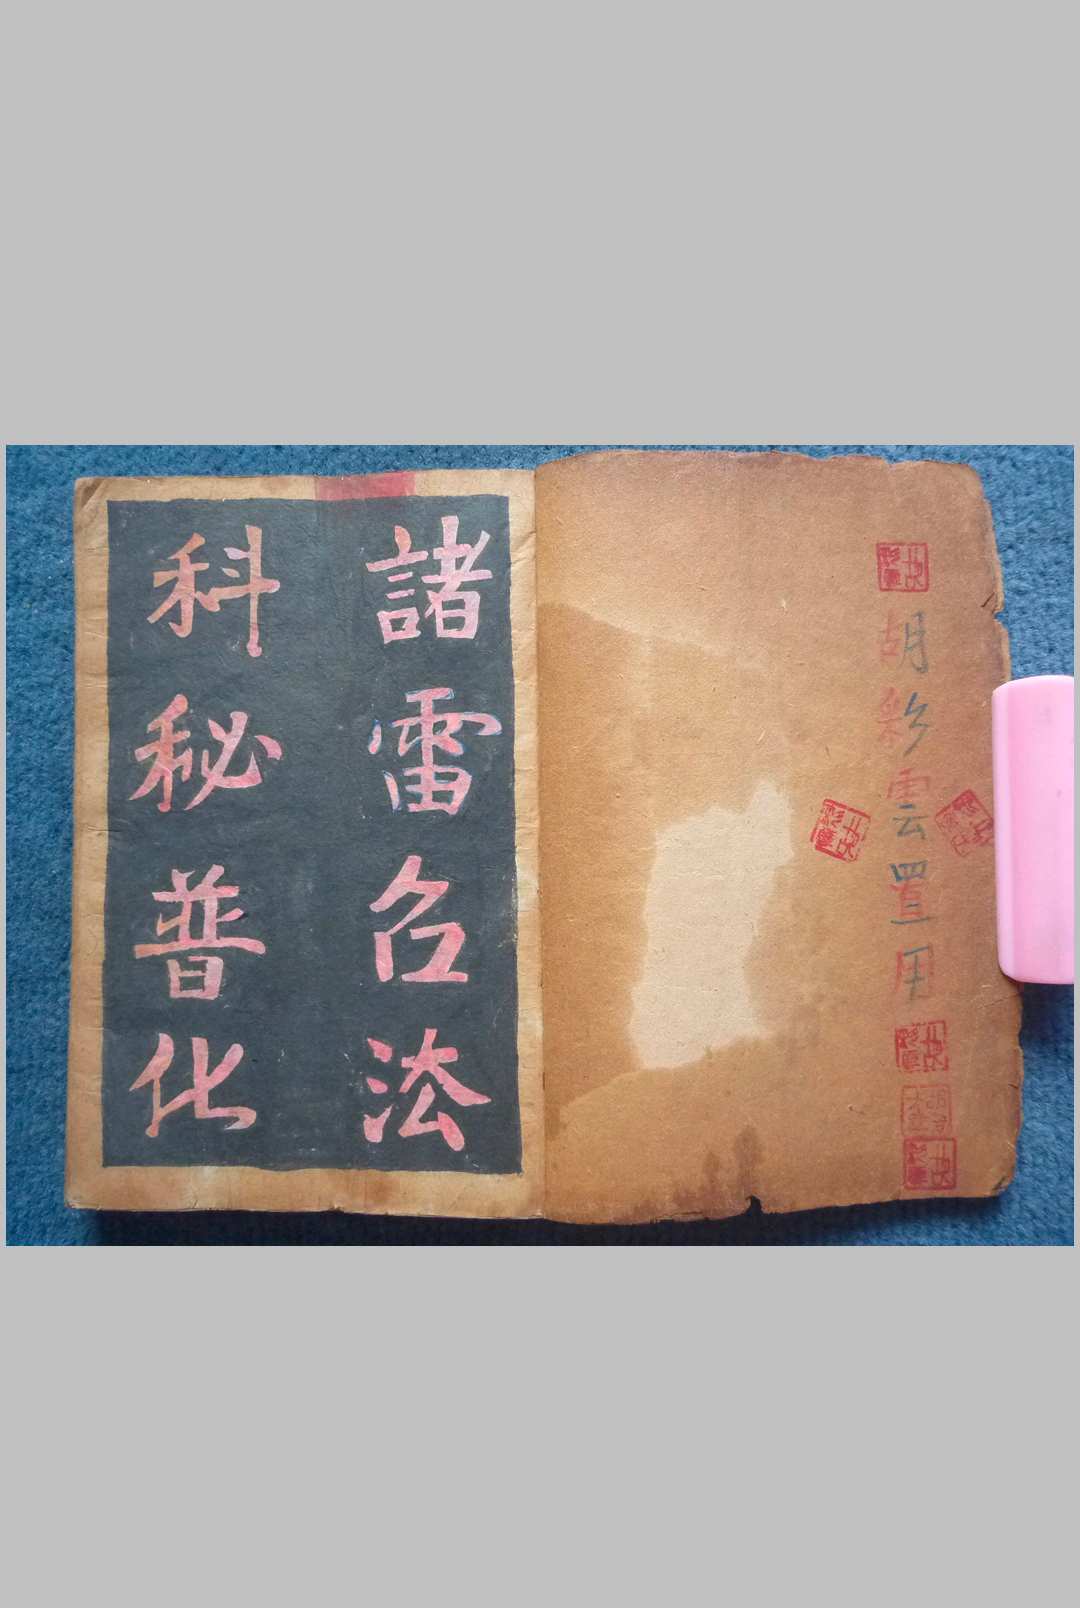 胡彩雲置用
諸雷召法
科秘普化